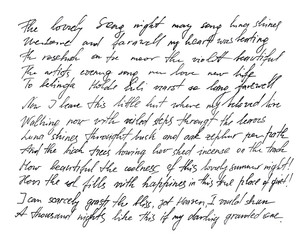 The lovely Song night may song Luna shines
Welcome and farewell my heart was beating
The rosebush on the moor the violet beautiful
The artist's evening song new love new life
To belinda Holds lili most so long farewell
Now I leave this little hut where my beloved live
Walking now with veiled steps through the leaves
Luna shines through bush and oak zephyr
And the birch trees bowing low shed incense on the track
How beautiful the coolness of this lovely summer night!
How the soul fills with happiness in this true place of quiet!
I can scarcely grasp the bliss, yet Heaven, I would shun
A thousand nights like this if my darling granted one.